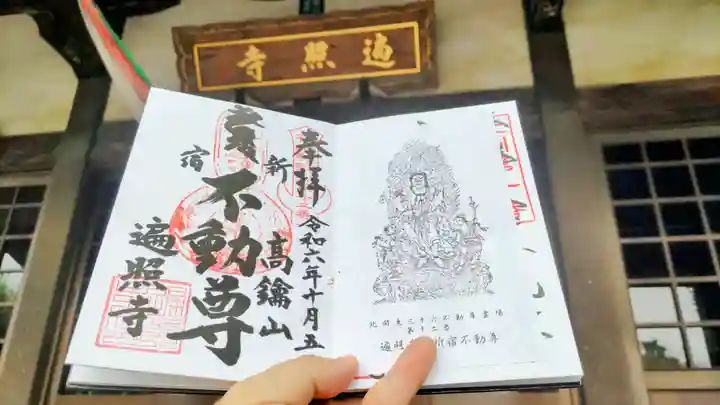 遍照寺
奉拝
令和六年十月五
新
高鑰山
不動尊
宿
遍照寺
北関東三十六不動尊霊場
第十二番
不動尊